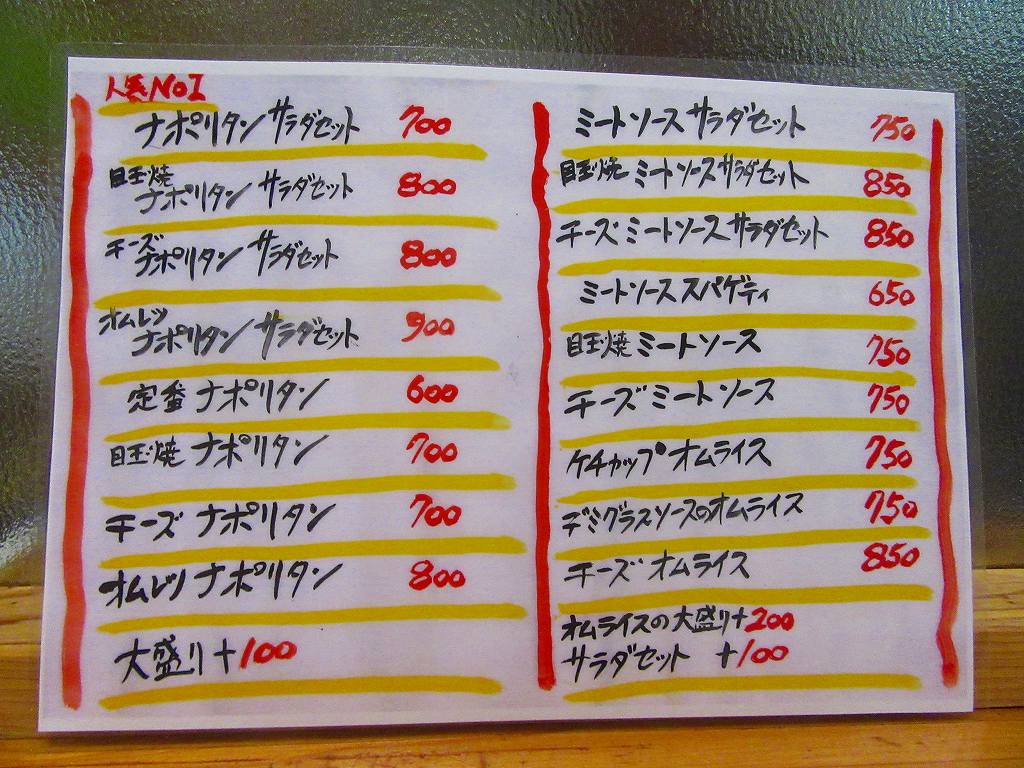 人気No1
ナポリタン サラダセット 700
目玉焼
ナポリタン サラダセット 800
チーズ
ナポリタン サラダセット 800
オムレツ
ナポリタン サラダセット 900
定番 ナポリタン 600
目玉焼 ナポリタン 700
チーズ ナポリタン 700
オムレツ ナポリタン 800
大盛り+100
ミートソース サラダセット 750
目玉焼 ミートソースサラダセット 850
チーズ ミートソースサラダセット 850
ミートソース スパゲティ 650
目玉焼 ミートソース 750
チーズ ミートソース 750
ケチャップ オムライス 750
デミグラスソースのオムライス 750
チーズ オムライス 850
オムライスの大盛り+200
サラダセット +100